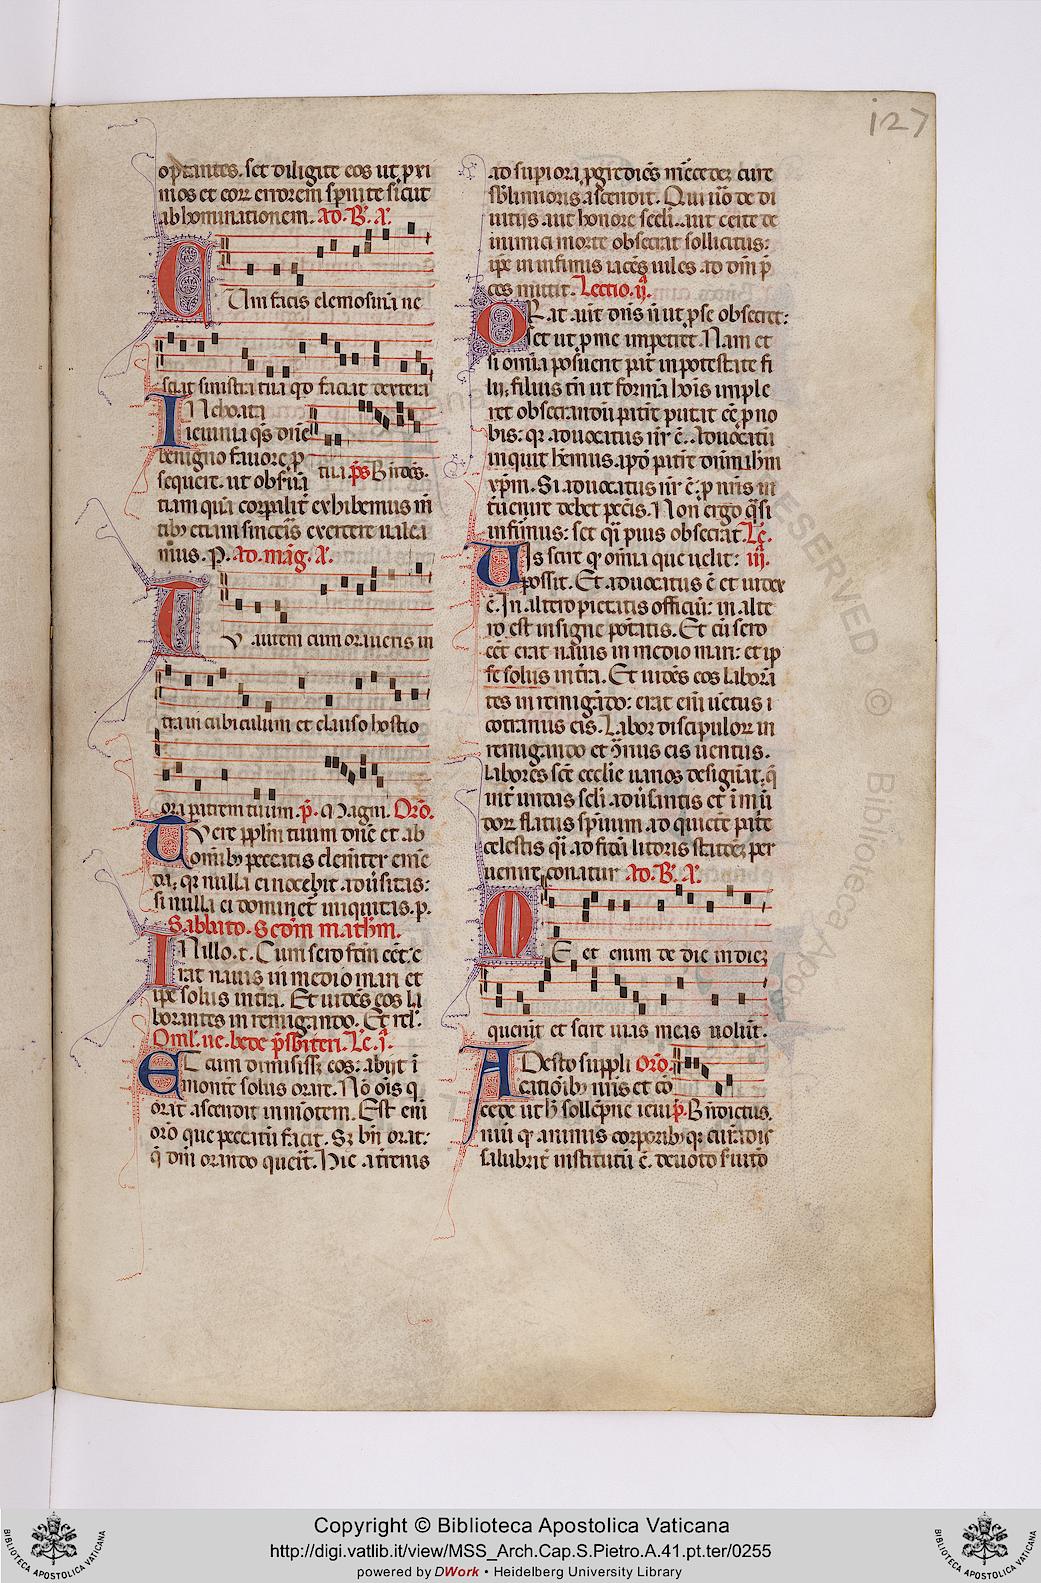 127
optantes. set diligite eos ut pxi
mos et eorr errorem spuite sicut
abhominationem. ad. B. a.
Cum facis elemosinā ne
sciat sinistra tua qd faciat dextera
Inchoata
ieiunia qs dne
benigno fauore p
sequere. ut obsrua tua ps Bndcs.
tiam quā corpalit exhibemus m
tib; etiam sinceris exercere ualea
mus. P. ad. mag. a.
Tu autem cum oraueris in
tra in cubiculum et clauso hostio
ora patrem tuum. p. Magn. Oro.
Tuere pplm tuum dne et ab
omib; peccatis clemter emū
da. qr nulla ei nocebit adusitas:
si nulla ei dominet iniquitas. p.
Sabbato. Scdm math m.
In illo. t. Cum sero fcm eet. e
rat nauis in medio mari et
ipe solus in tra. Et uidēs eos la
borantes in remigando. Et rel.
Oml. ue. bede psbiteri. Lc. i.
Et cum dimisisset eos: abijt ī
montē solus orare. Nō oīs q
orat ascendit in mōtem. Est eni
orō que peccatū facit. Sz bn orat:
q dm orando querit. Hic a terrenis
ad supiora pgredies
sblimioris ascendit. Qui uo de di
uitijs aut honore scli. aut certe de
inimici morte obsecrat sollicitus:
ipe in infimis iaces uiles ad dm p
ces mittit. Lectio. ij.
Orat aut dns n ut p se obsecret:
set ut p me impetret. Nam et
si omia posuerit pat in potestate fi
lij. filius tn ut formā hois imple
ret obsecrandū patrē putat eē p no
bis: qr aduocatus nr ē. Aduocatū
inquit hemus apd patrē dnm ihm
xpm. Si aduocatus nr ē. p nris in
tuenire debet pccis. Non ergo qsi
infirmus: set qi pius obsecrat. Lc.
Uis scire q omia que uelit: iij.
possit. Et aduocatus ē et iudex
ē. In altero pietatis officiū: in alte
ro est insigne potatis. Et cū sero
eēt erat nauis in medio mari: et ip
se solus in tra. Et uides eos labora
tes in remigādo: erat eni uetus
cotrarius eis. Labor discipulorr in
remigando et 9rius eis uentus.
labores scē ecclie uarios designat. q
int undas scli aduersantis et inmū
dorr flatus spirituum ad quietē patē
celestis qi ad fidū litoris statiōēz per
uenire conatur. ad. B. a.
Me et enim de die in diez
querūt et scire uias meas uolūt.
Adesto suppli Oro.
cationib; nris et cō
cede ut h sollepne ieiu p. Bndictus.
niū qr animis corporib; qr curādis
salubrit institutū ē. deuoto suitio
RESERVED © Biblioteca Apos
Copyright © Biblioteca Apostolica Vaticana
http://digi.vatlib.it/view/MSS_Arch.Cap.S.Pietro.A.41.pt.ter/0255
powered by DWork • Heidelberg University Library
BIBLIOTECA APOSTOLICA VATICANA
BIBLIOTECA APOSTOLICA VATICANA